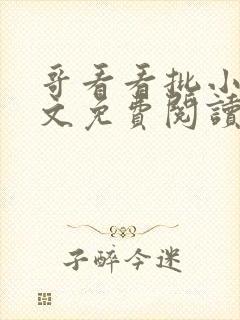 哥看看批小
文免費閱讀
子醉今迷